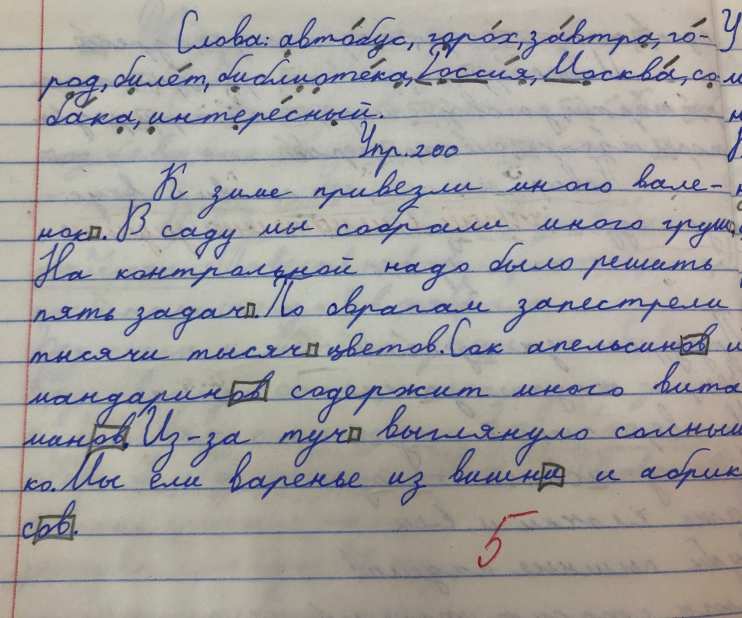 Слова: автобус, горох, завтра, го-
род, билет, библиотека, Россия, Москва, со
бака, интересный.
Упр. 200
К зиме привезли много вале-
нок. В саду мы собрали много груш.
На контрольной надо было решить
пять задач. По оврагам запестрели
тысячи тысяч цветов. Сок апельсинов и
мандаринов содержит много вита
манов. Из-за туч выглянуло солныш
ко. Мы ели варенье из вишни и абрик
сов.
5